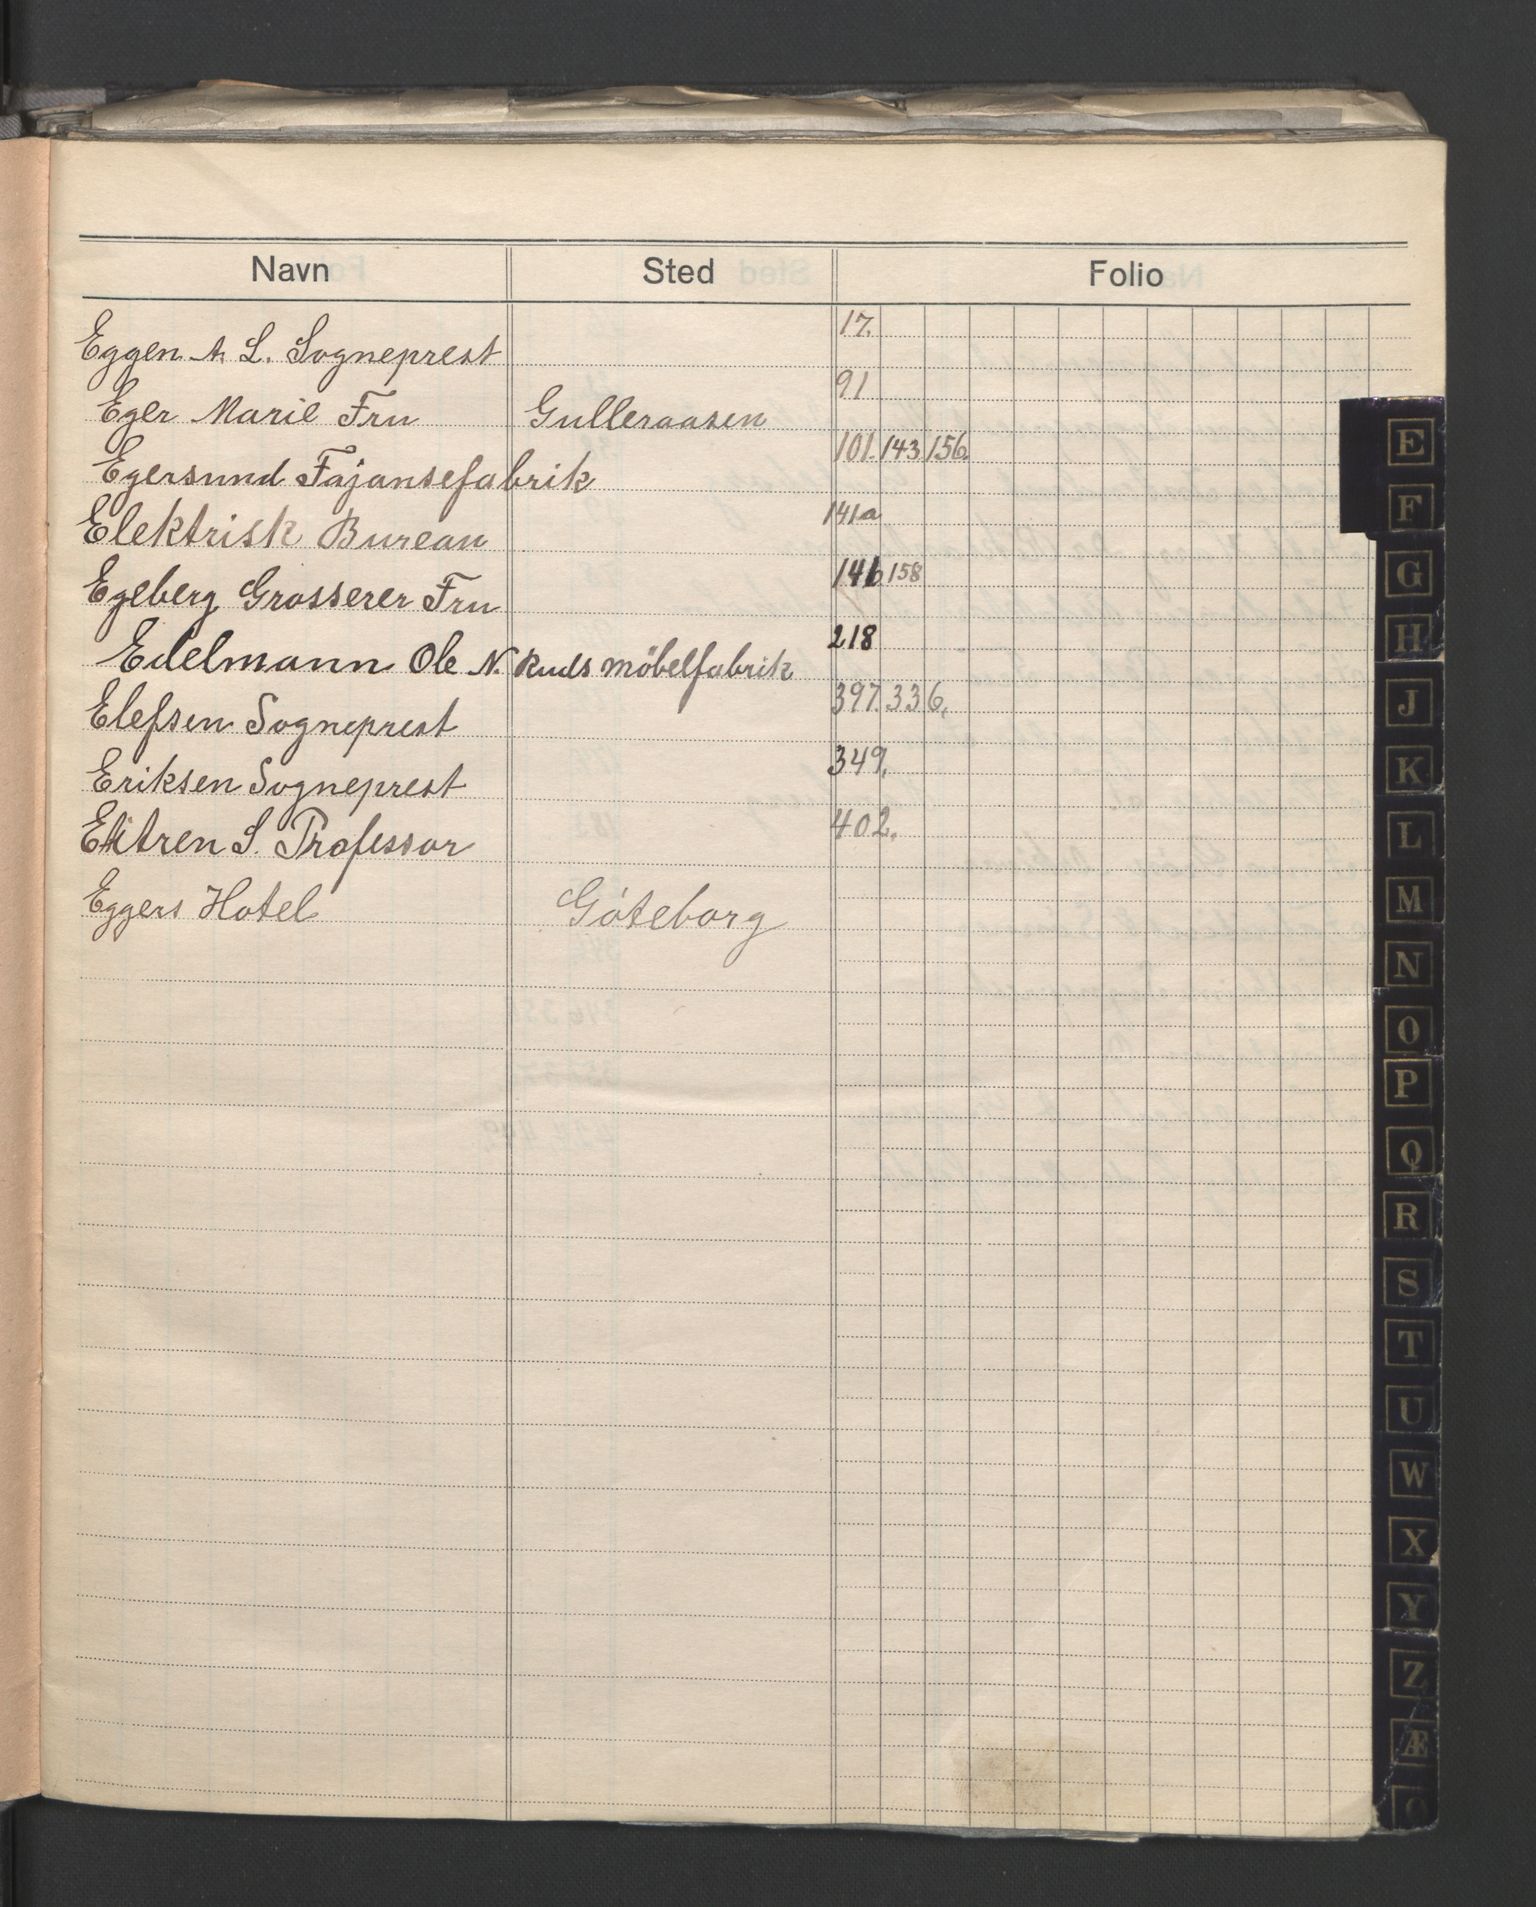 Navn Sted Folio
Eggen A. L. Sogneprest 17.
Eger Marie Fru Gulleraasen 91
Egersund Fajansefabrik 101. 143 156.
Elektrisk Bureau 141a
Egeberg Grosserer Fru 146 158
Edelmann Ole N. Ruds Möbelfabrik 218
Elefsen Sogneprest 397. 336.
Eriksen Sogneprest 349.
Eitren S. Professor 402.
Eggers Hotel Göteborg
E
F
G
H
J
K
L
M
N
O
P
Q
R
S
T
U
W
X
Y
Z
Æ